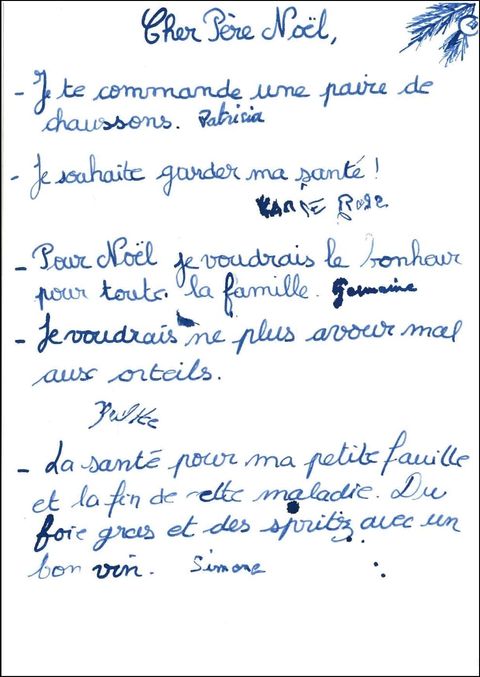 Cher Père Noël,
- Je te commande une paire de
chaussons. Patricia
- Je souhaite garder ma santé !
Rose
- Pour Noël je voudrais le bonheur
pour toute la famille. Germaine
- Je voudrais ne plus avoir mal
aux orteils.
- La santé pour ma petite famille
et la fin de cette maladie. Du
foie gras et des spritz avec un
bon vin. Simone